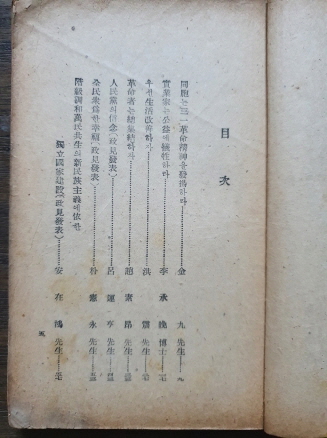 目次
同胞는 三一革命精神을 發揚하라………金九先生…
實業家는 公益에 犧牲하라………李承晩博士…
우선 生活改善하자………洪震先生…
革命者는 總集結하자………趙素昂先生…
人民黨의 信念(政見發表)………呂運亨先生…
全民衆의 幸福(政見發表)………朴憲永先生…
階級調和萬民共生의 新民族主義에 依한
獨立國家建設(政見發表)………安在鴻先生…
五